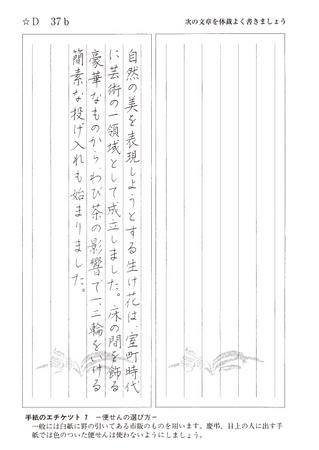 ☆D 37b
次の文章を体裁よく書きましょう
自然の美を表現しようとする生け花は、室町時代
に芸術の一領域として成立しました。床の間を飾る
豪華なものから、わび茶の影響で一、二輪をいける
簡素な投げ入れも始まりました。
手紙のエチケット 7 −便せんの選び方−
一般には白紙に罫の引いてある市販のものを用います。慶弔、目上の人に出す手
紙では色のついた便せんは使わないようにしましょう。